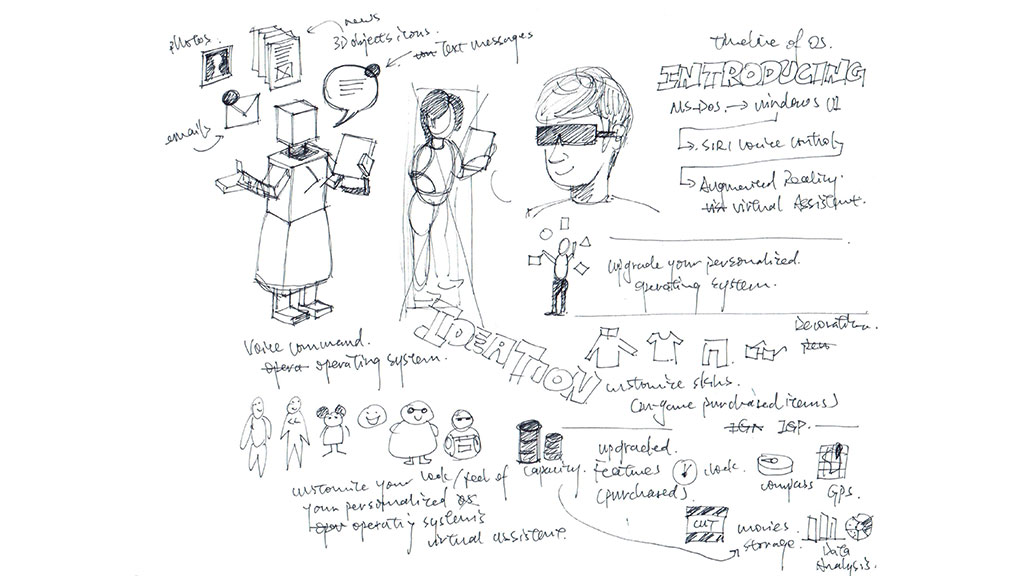 news
photos.
3D objects icons.
Text messages
emails
Timeline of OS.
INTRODUCING
MS-DOS → Windows UI
SIRI Voice Control
Augmented Reality.
virtual Assistent.
upgrade your personalized.
operating system.
IDEATION
Voice command.
operating system.
Decoration.
customize skins.
(in-game purchased items)
IGP.
customize your look/feel of
your personalized
operating system's
virtual assistent.
capacity.
upgraded.
features
(purchased).
clock.
compass
GPS.
CUT
movies.
storage.
Data
Analysis.